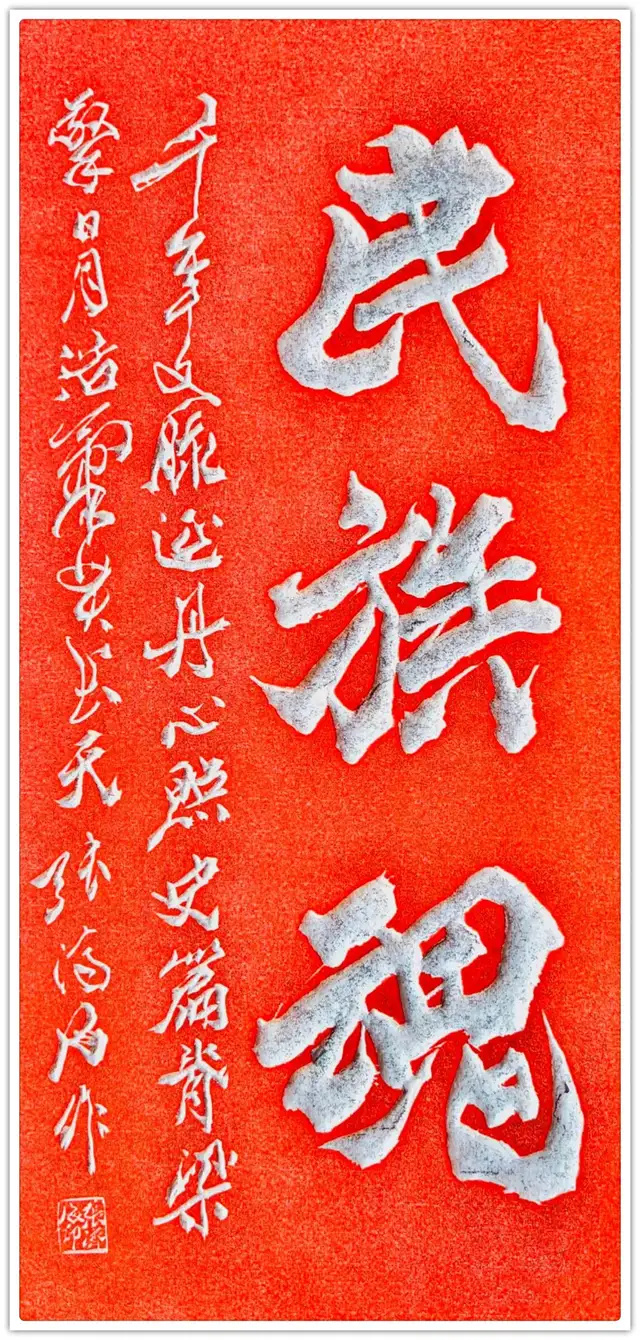 民族魂
千年文脉延丹心照史篇脊梁
擎日月浩氣长天 张作